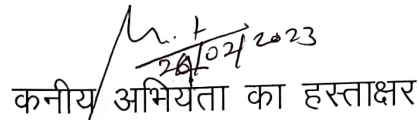 20/02/2023
कनीय अभियंता का हस्ताक्षर